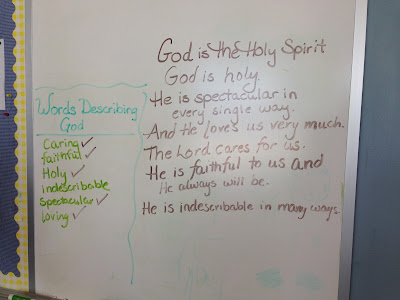 Words Describing
God
Caring ✓
faithful ✓
Holy ✓
indescribable
spectacular ✓
loving ✓
God is the Holy Spirit
God is holy.
He is spectacular in
every single way.
And He loves us very much.
The Lord cares for us.
He is faithful to us and
He always will be.
He is indescribable in many ways.